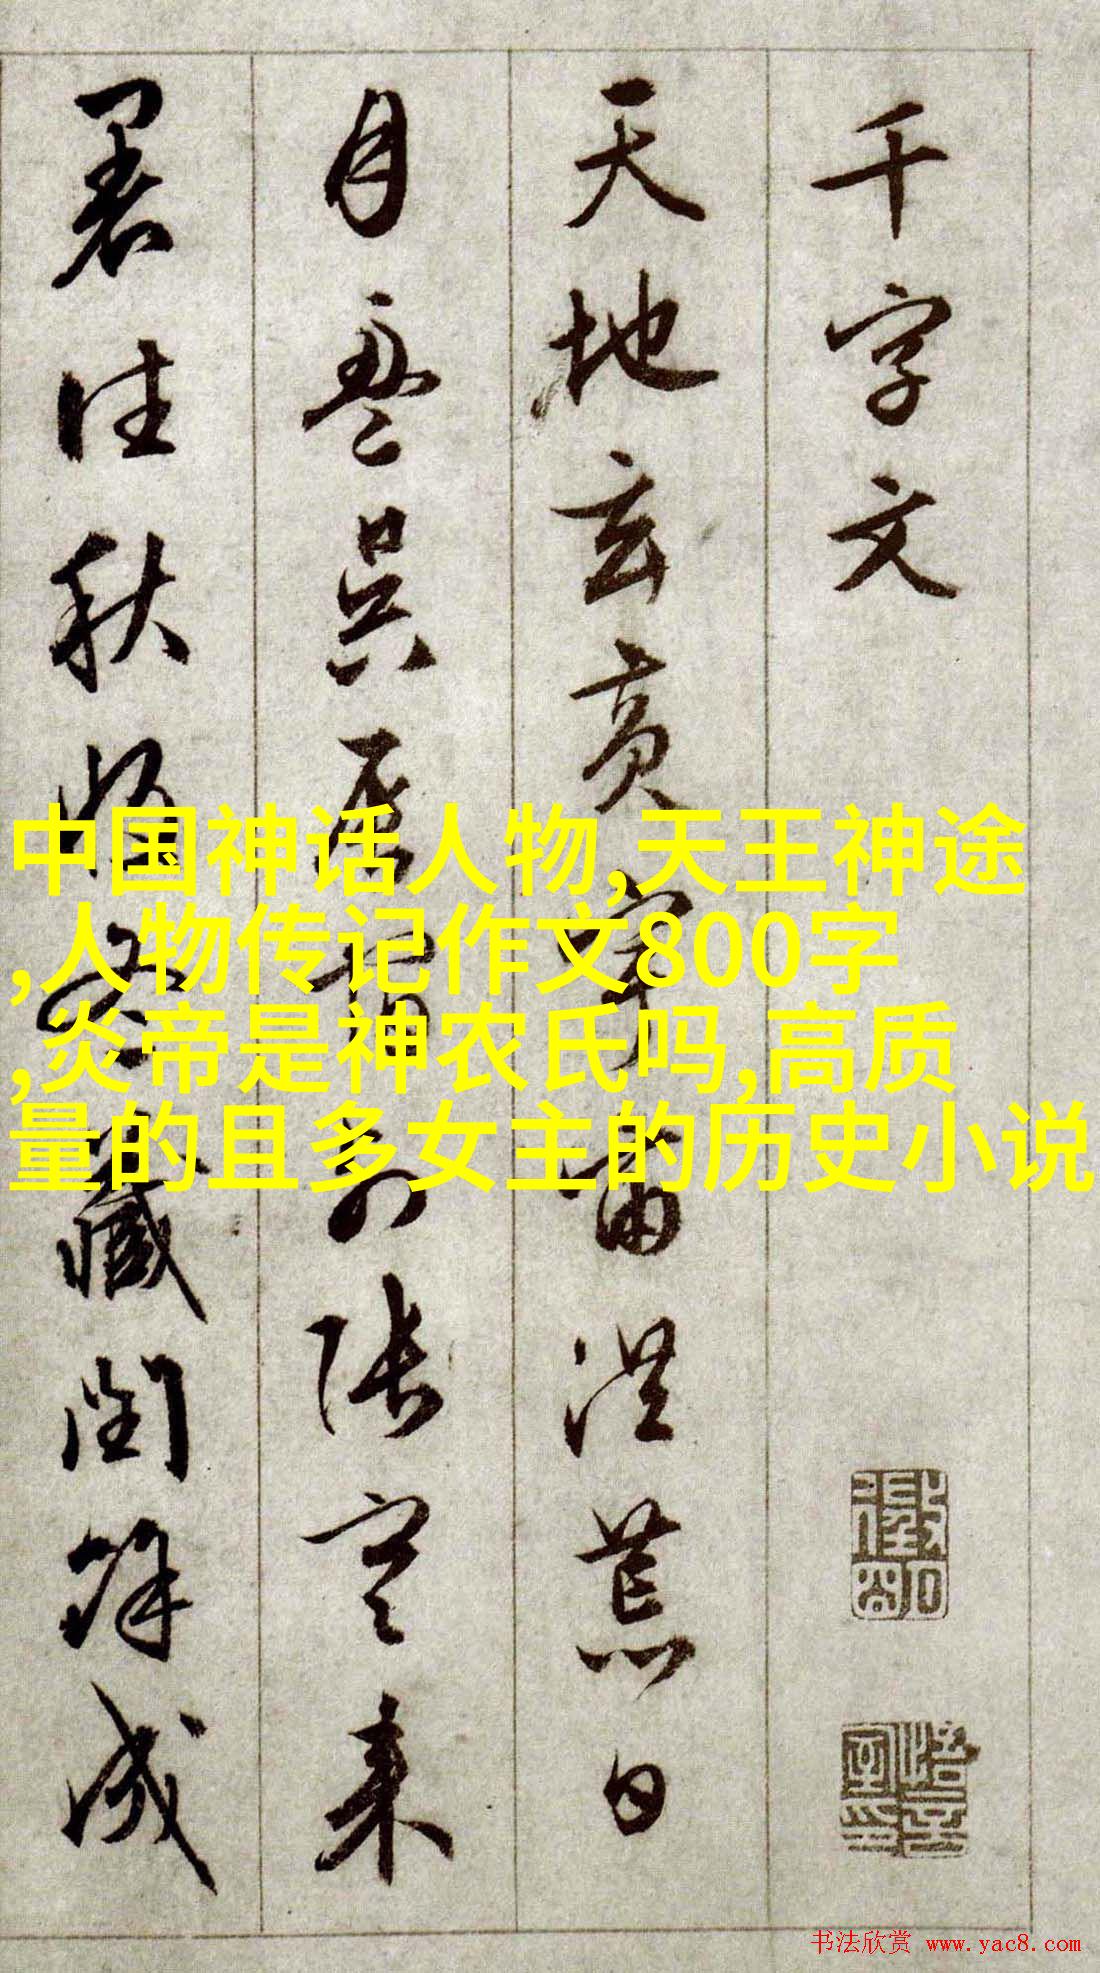 千字文
天地玄黄宇宙洪荒日
月盈昃辰宿列張寒来
暑往秋收冬藏閏餘成
中国神话人物,天王神途
,人物传记作文800字
,炎帝是神农氏吗,高质
量的且多女主的历史小说
书法欣赏 www.yac8.com